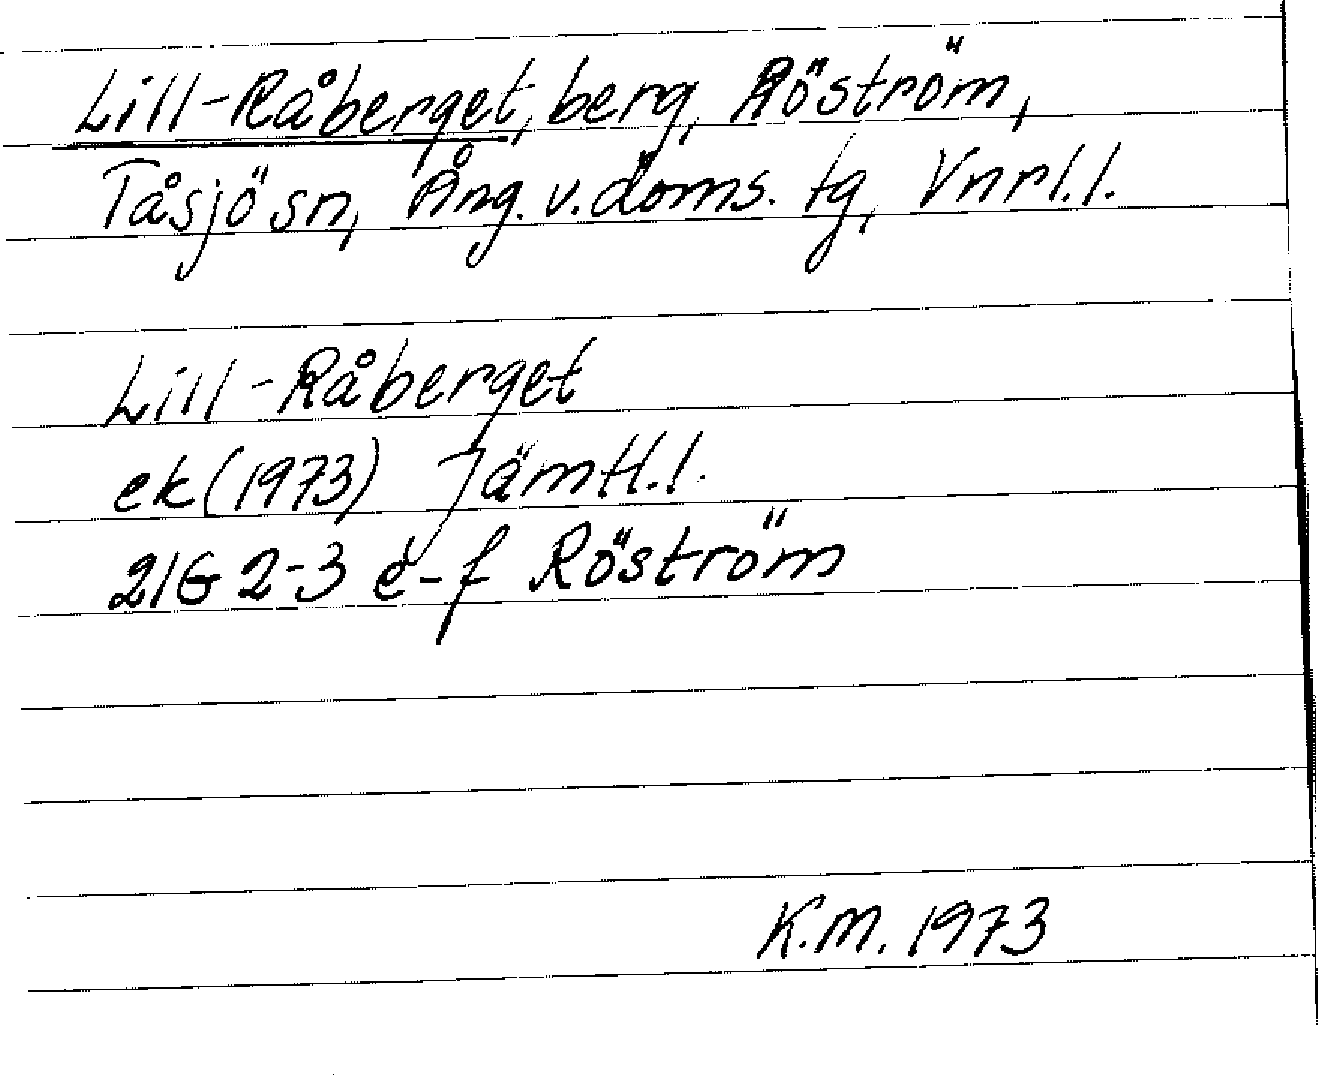 Lill-Råberget, berg, Röström,
Tåsjö sn, Ång. v. doms. tg, Vnrl.l.
Lill-Råberget
ek (1973) Jämtl.l.
21G 2-3 e-f Röström
K.M. 1973